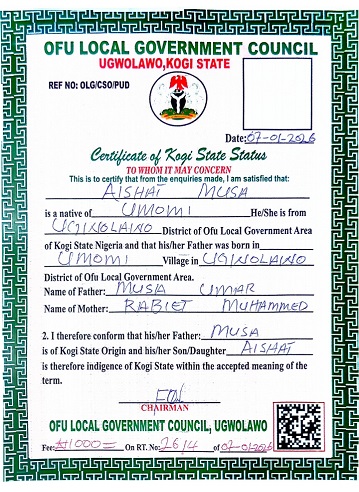 OFU LOCAL GOVERNMENT COUNCIL
UGWOLAWO,KOGI STATE
REF NO: OLG/CSO/PUD
Date: 07-01-2026
Certificate of Kogi State Status
TO WHOM IT MAY CONCERN
This is to certify that from the enquiries made, I am satisfied that:
AISHAT MUSA
is a native of UMOMI He/She is from
UGWOLAWO District of Ofu Local Government Area
of Kogi State Nigeria and that his/her Father was born in
UMOMI Village in UGWOLAWO
District of Ofu Local Government Area.
Name of Father: MUSA UMAR
Name of Mother: RABIET MUHAMMED
2. I therefore conform that his/her Father: MUSA
is of Kogi State Origin and his/her Son/Daughter AISHAT
is therefore indigence of Kogi State within the accepted meaning of the
term.
CHAIRMAN
OFU LOCAL GOVERNMENT COUNCIL, UGWOLAWO
Fee: ₦1000= On RT. No: 2614 of 07-01-2026